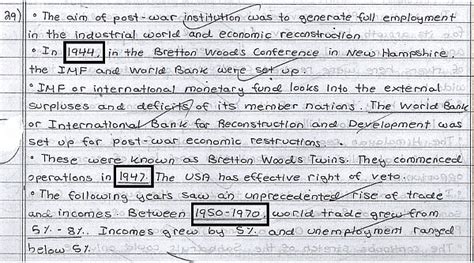 29) • The aim of post-war institution was to generate full employment
in the industrial world and economic reconstruction
• In 1944, in the Bretton Woods Conference in New Hampshire,
the IMF and World Bank were set up.
• IMF or international monetary fund looks into the external
surpluses and deficits of its member nations. The World Bank
or International Bank for Reconstruction and Development was
set up for post-war economic restructions.
• These were known as Bretton Woods Twins. They commenced
operations in 1947. The USA has effective right of veto.
• The following years saw an unprecedented rise of trade
and incomes. Between 1950-1970, world trade grew from
5% - 8%. Incomes grew by 5% and unemployment ranged
below 5%